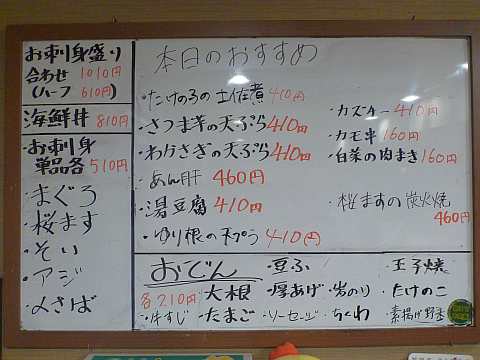 お刺身盛り
合わせ 1010円
(ハーフ 610円)
海鮮丼 810円
・お刺身
単品各 510円
・まぐろ
・桜ます
・そい
・アジ
・〆さば
本日のおすすめ
・たけのこの土佐煮 410円
・さつま芋の天ぷら 410円
・わかさぎの天ぷら 410円
・あん肝 460円
・湯豆腐 410円
・ゆり根の天ぷら 410円
・カズチー 410円
・カモ串 160円
・白菜の肉まき 160円
・桜ますの炭火焼
460円
おでん
各210円
・豆ふ
・玉子焼
・大根
・厚あげ
・岩のり
・たけのこ
・牛すじ
・たまご
・ソーセージ
・ちくわ
・素揚げ野菜